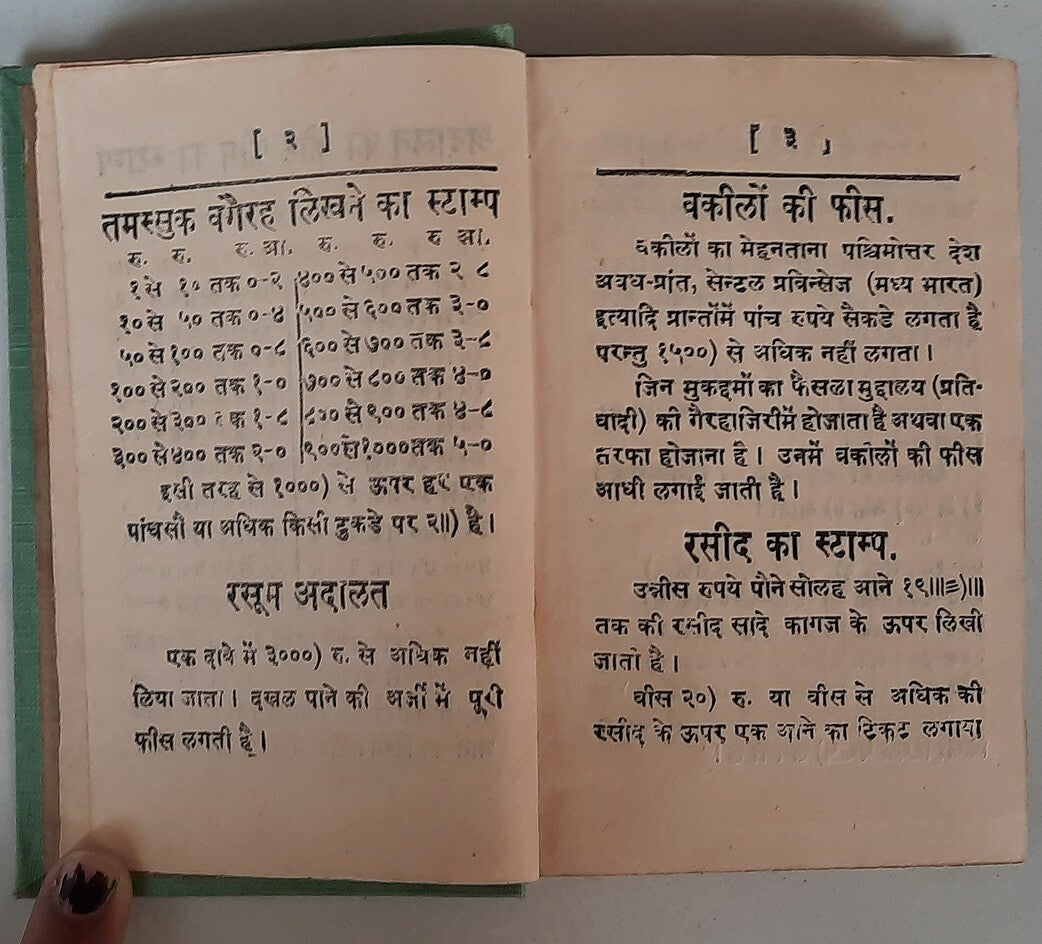 [ २ ]
तमस्सुक वगैरह लिखने का स्टाम्प
रु. रु. रु. आ. रु. रु. रु आ.
१ से १० तक ०-२ ४०० से ५०० तक २ ८
१० से ५० तक ०-४ ५०० से ६०० तक ३-०
५० से १०० तक ०-८ ६०० से ७०० तक ३-८
१०० से २०० तक १-० ७०० से ८०० तक ४-०
२०० से ३०० तक १-८ ८०० से ९०० तक ४-८
३०० से ४०० तक २-० ९०० से १००० तक ५-०
इसी तरह से १०००) से ऊपर हर एक
पांचसौ या अधिक किसी टुकडे पर २॥) है।
रसूम अदालत
एक दावे में ३०००) रु. से अधिक नहीं
लिया जाता। दखल पाने की अर्जी में पूरी
फीस लगती है।
[ ३ ]
वकीलों की फीस.
वकीलों का मेहनताना पश्चिमोत्तर देश
अवध-प्रांत, सेन्टल प्रविन्सेज (मध्य भारत)
इत्यादि प्रान्तोंमें पांच रुपये सैकडे लगता है
परन्तु १५००) से अधिक नहीं लगता।
जिन मुकद्दमों का फैसला मुद्दालय (प्रति-
वादी) की गैरहाजिरीमें होजाता है अथवा एक
तरफा होजाना है। उनमें वकीलों की फीस
आधी लगाई जाती है।
रसीद का स्टाम्प.
उन्नीस रुपये पौने सोलह आने १९॥।≡)॥।
तक की रसीद सादे कागज के ऊपर लिखी
जाती है।
वीस २०) रु. या वीस से अधिक की
रसीद के ऊपर एक आने का टिकट लगाया